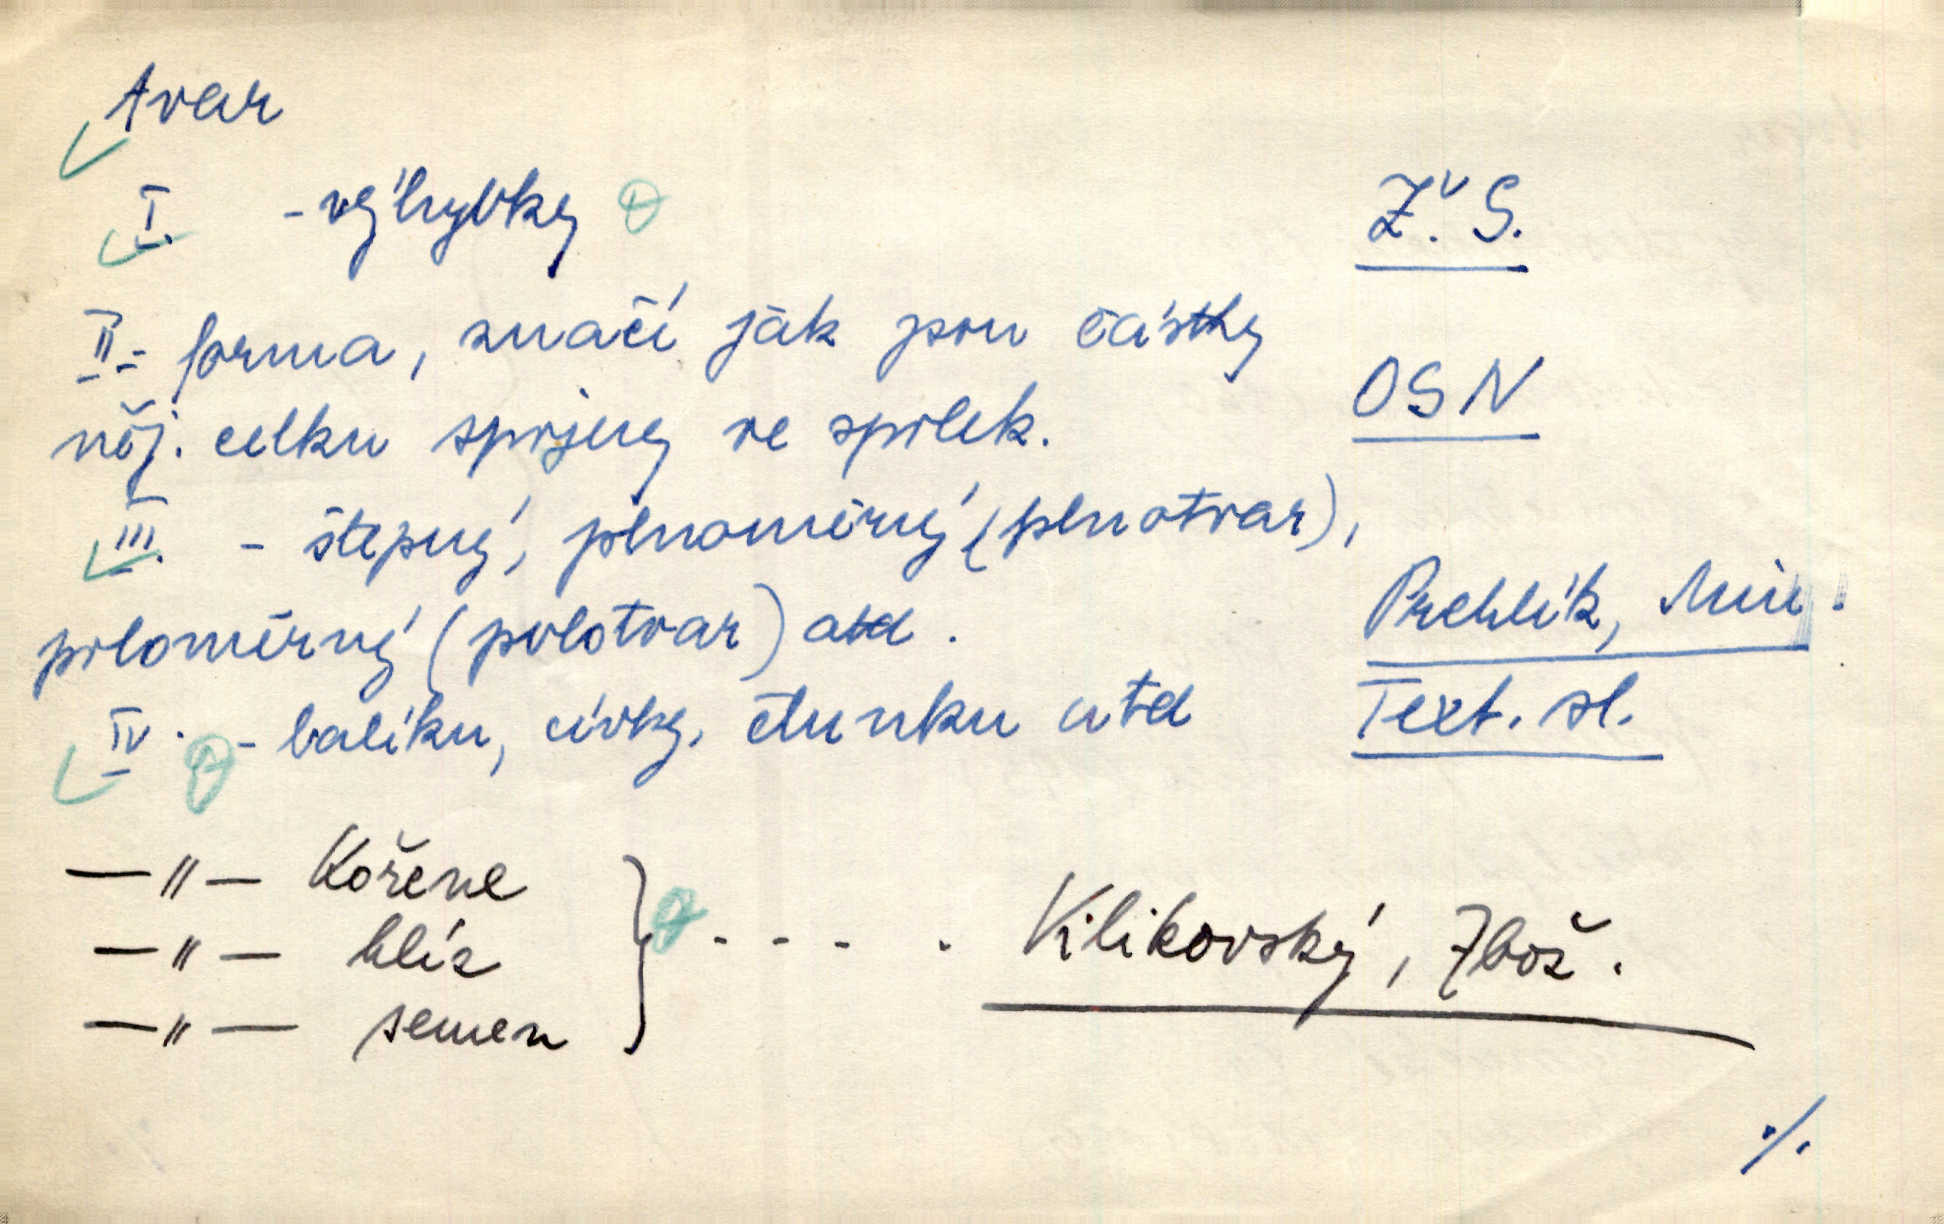 tvar
I. - výhybky Ž. S.
II - forma, značí jak jsou částky OSN
něj. celku spojeny ve spolek.
III. - štěpný, plnoměrný (plnotvar),
poloměrný (polotvar) atd. Prchlík, Min.
IV. - balíku, cívky, člunku atd Text. sl.
—〃— kořene
—〃— hlíz - - - . Klikovský, Zbož.
—〃— semen
./.